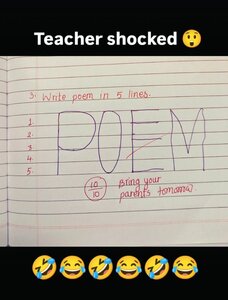 Teacher shocked 😲
3. Write poem in 5 lines.
1
2
3
4
5
POEM
10
10
Bring your
parents tomorrow
🤣😂🤣😂🤣😂